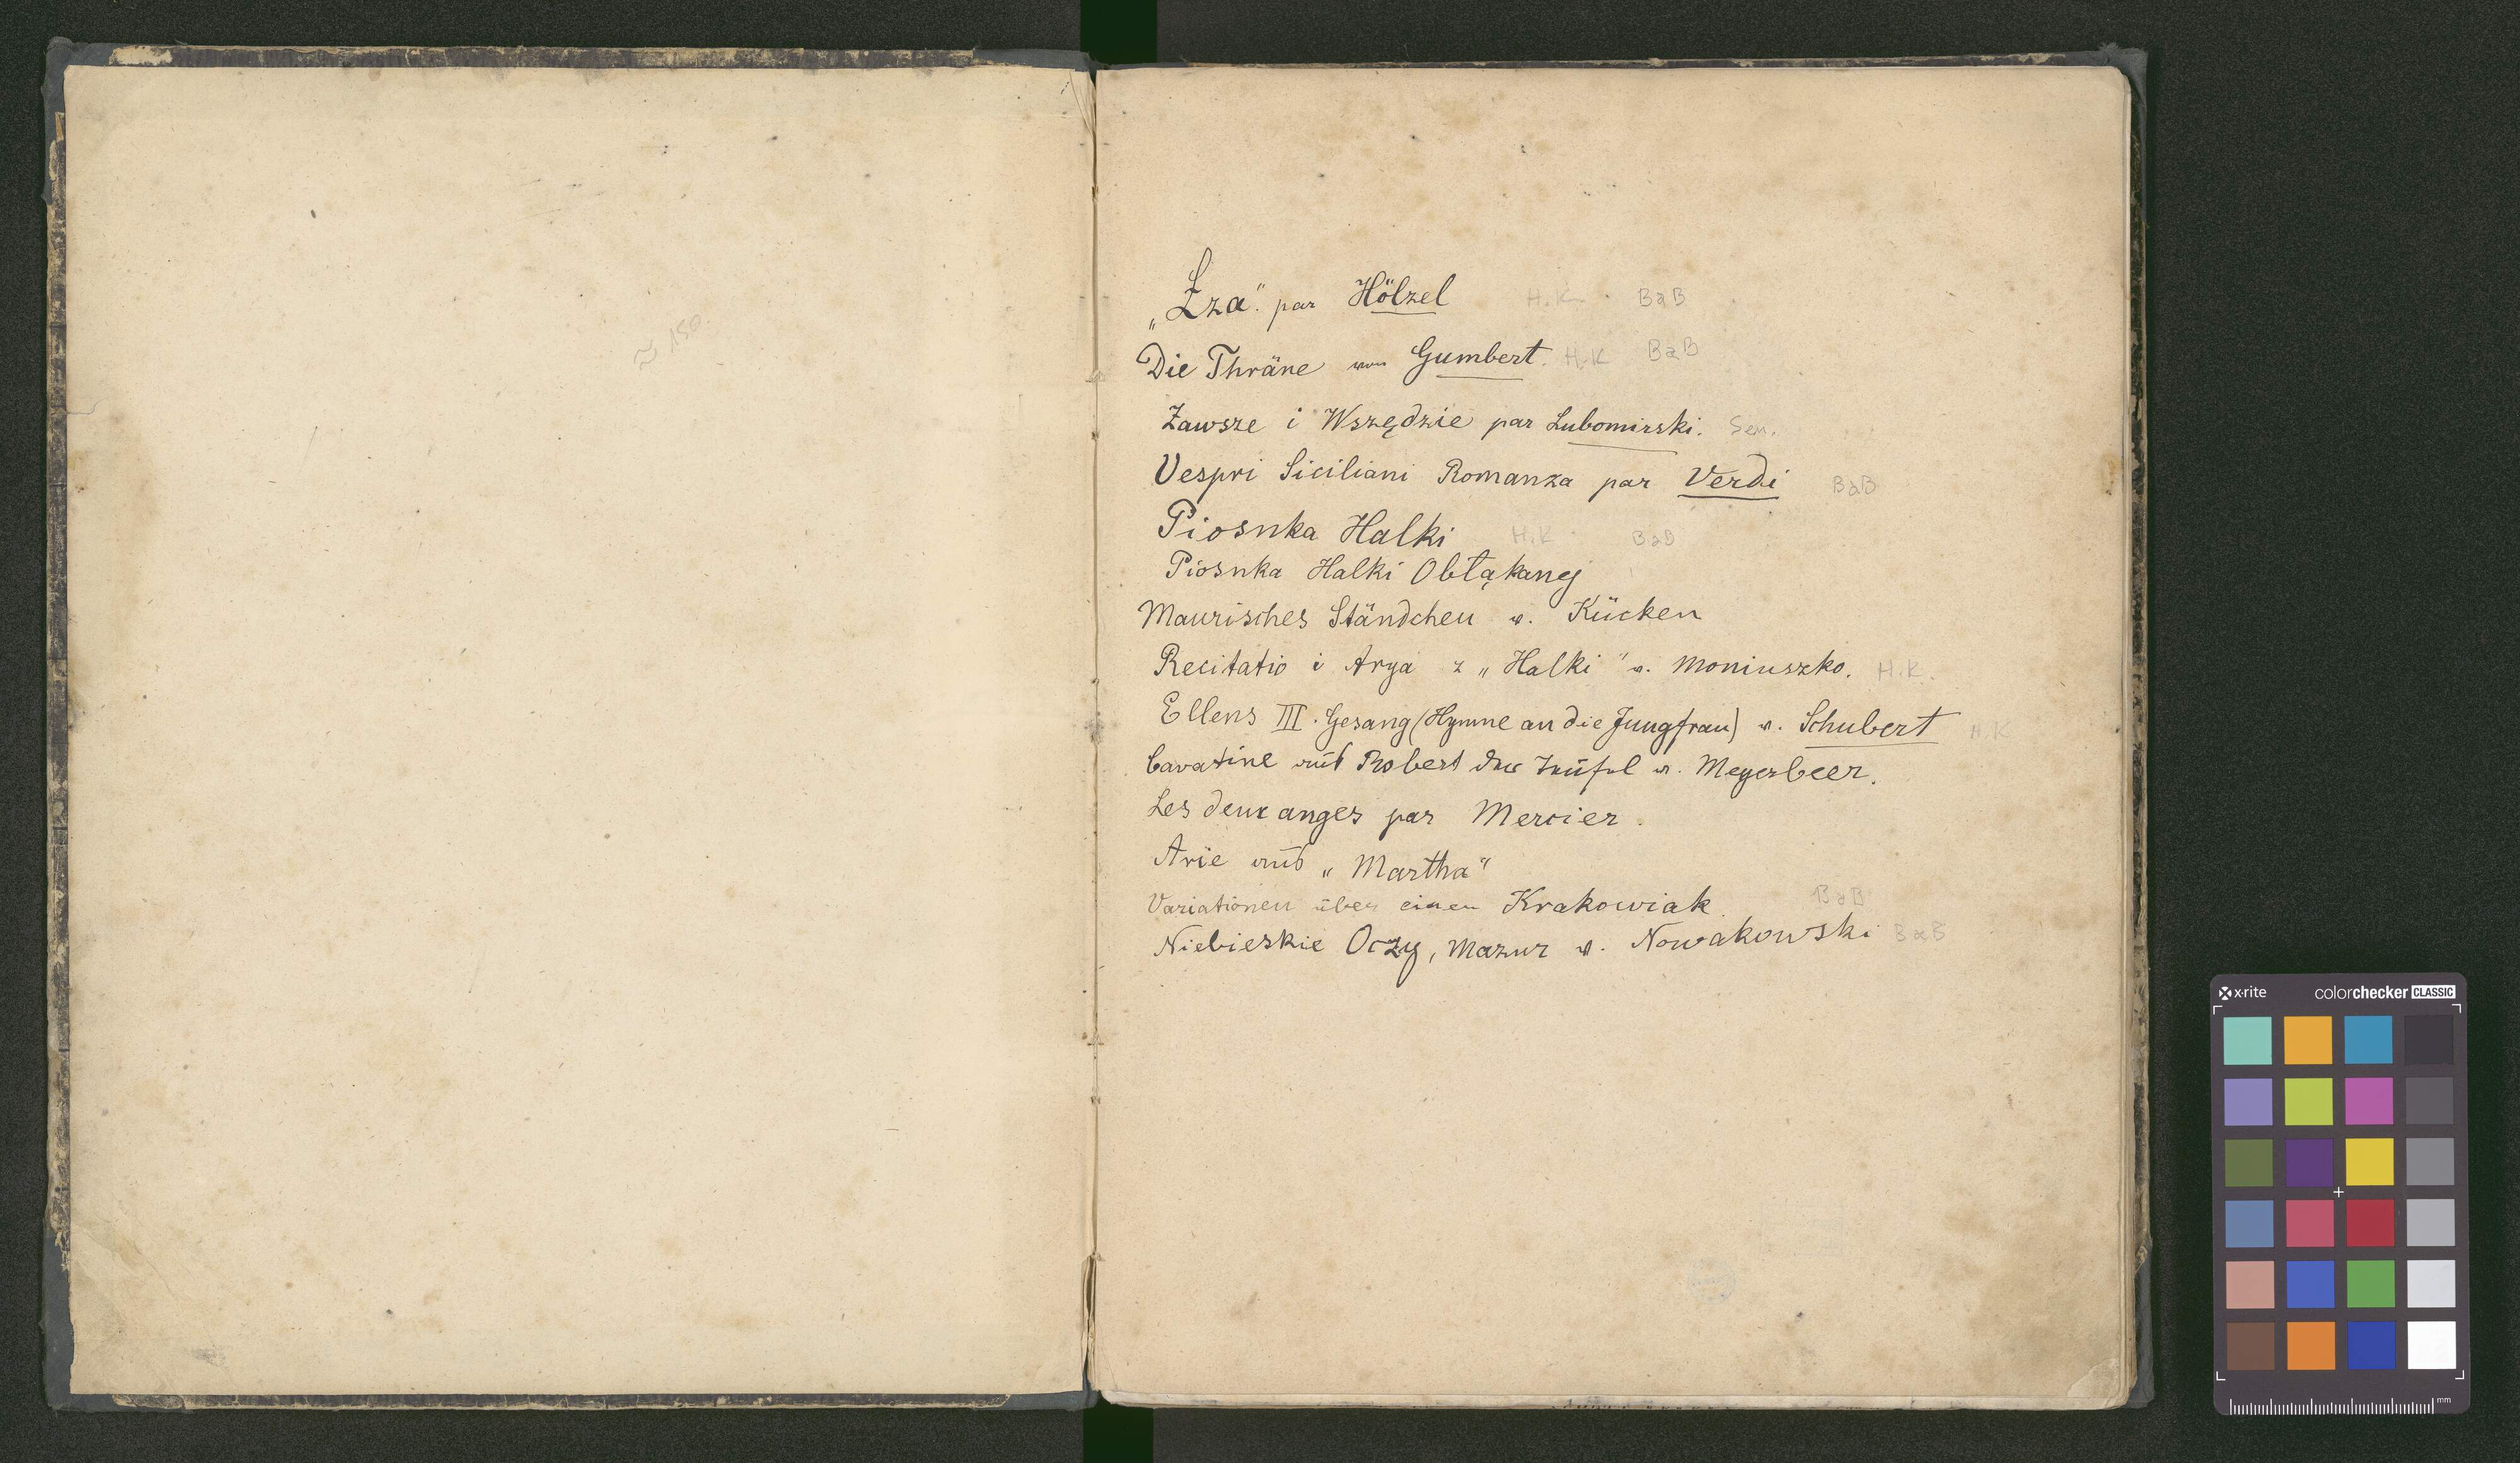 ≈ 150
„Łza“ par Hölzel H.K. BaB
Die Thräne von Gumbert. H.K BaB
Zawsze i Wszędzie par Lubomirski. Sen.
Vespri Siciliani Romanza par Verdi BaB
Piosnka Halki H.K BaB
Piosnka Halki Obłąkanej
Maurisches Ständchen v. Kücken
Recitatio i Arya z „Halki“ v. Moniuszko. H.K.
Ellens III. Gesang (Hymne an die Jungfrau) v. Schubert H.K
Cavatine aus Robert der Teufel v. Meyerbeer.
Les deux anges par Mercier.
Arie aus „Martha“
Variationen über einen Krakowiak. BaB
Niebieskie Oczy, Mazur v. Nowakowski BaB
x·rite colorchecker CLASSIC
mm